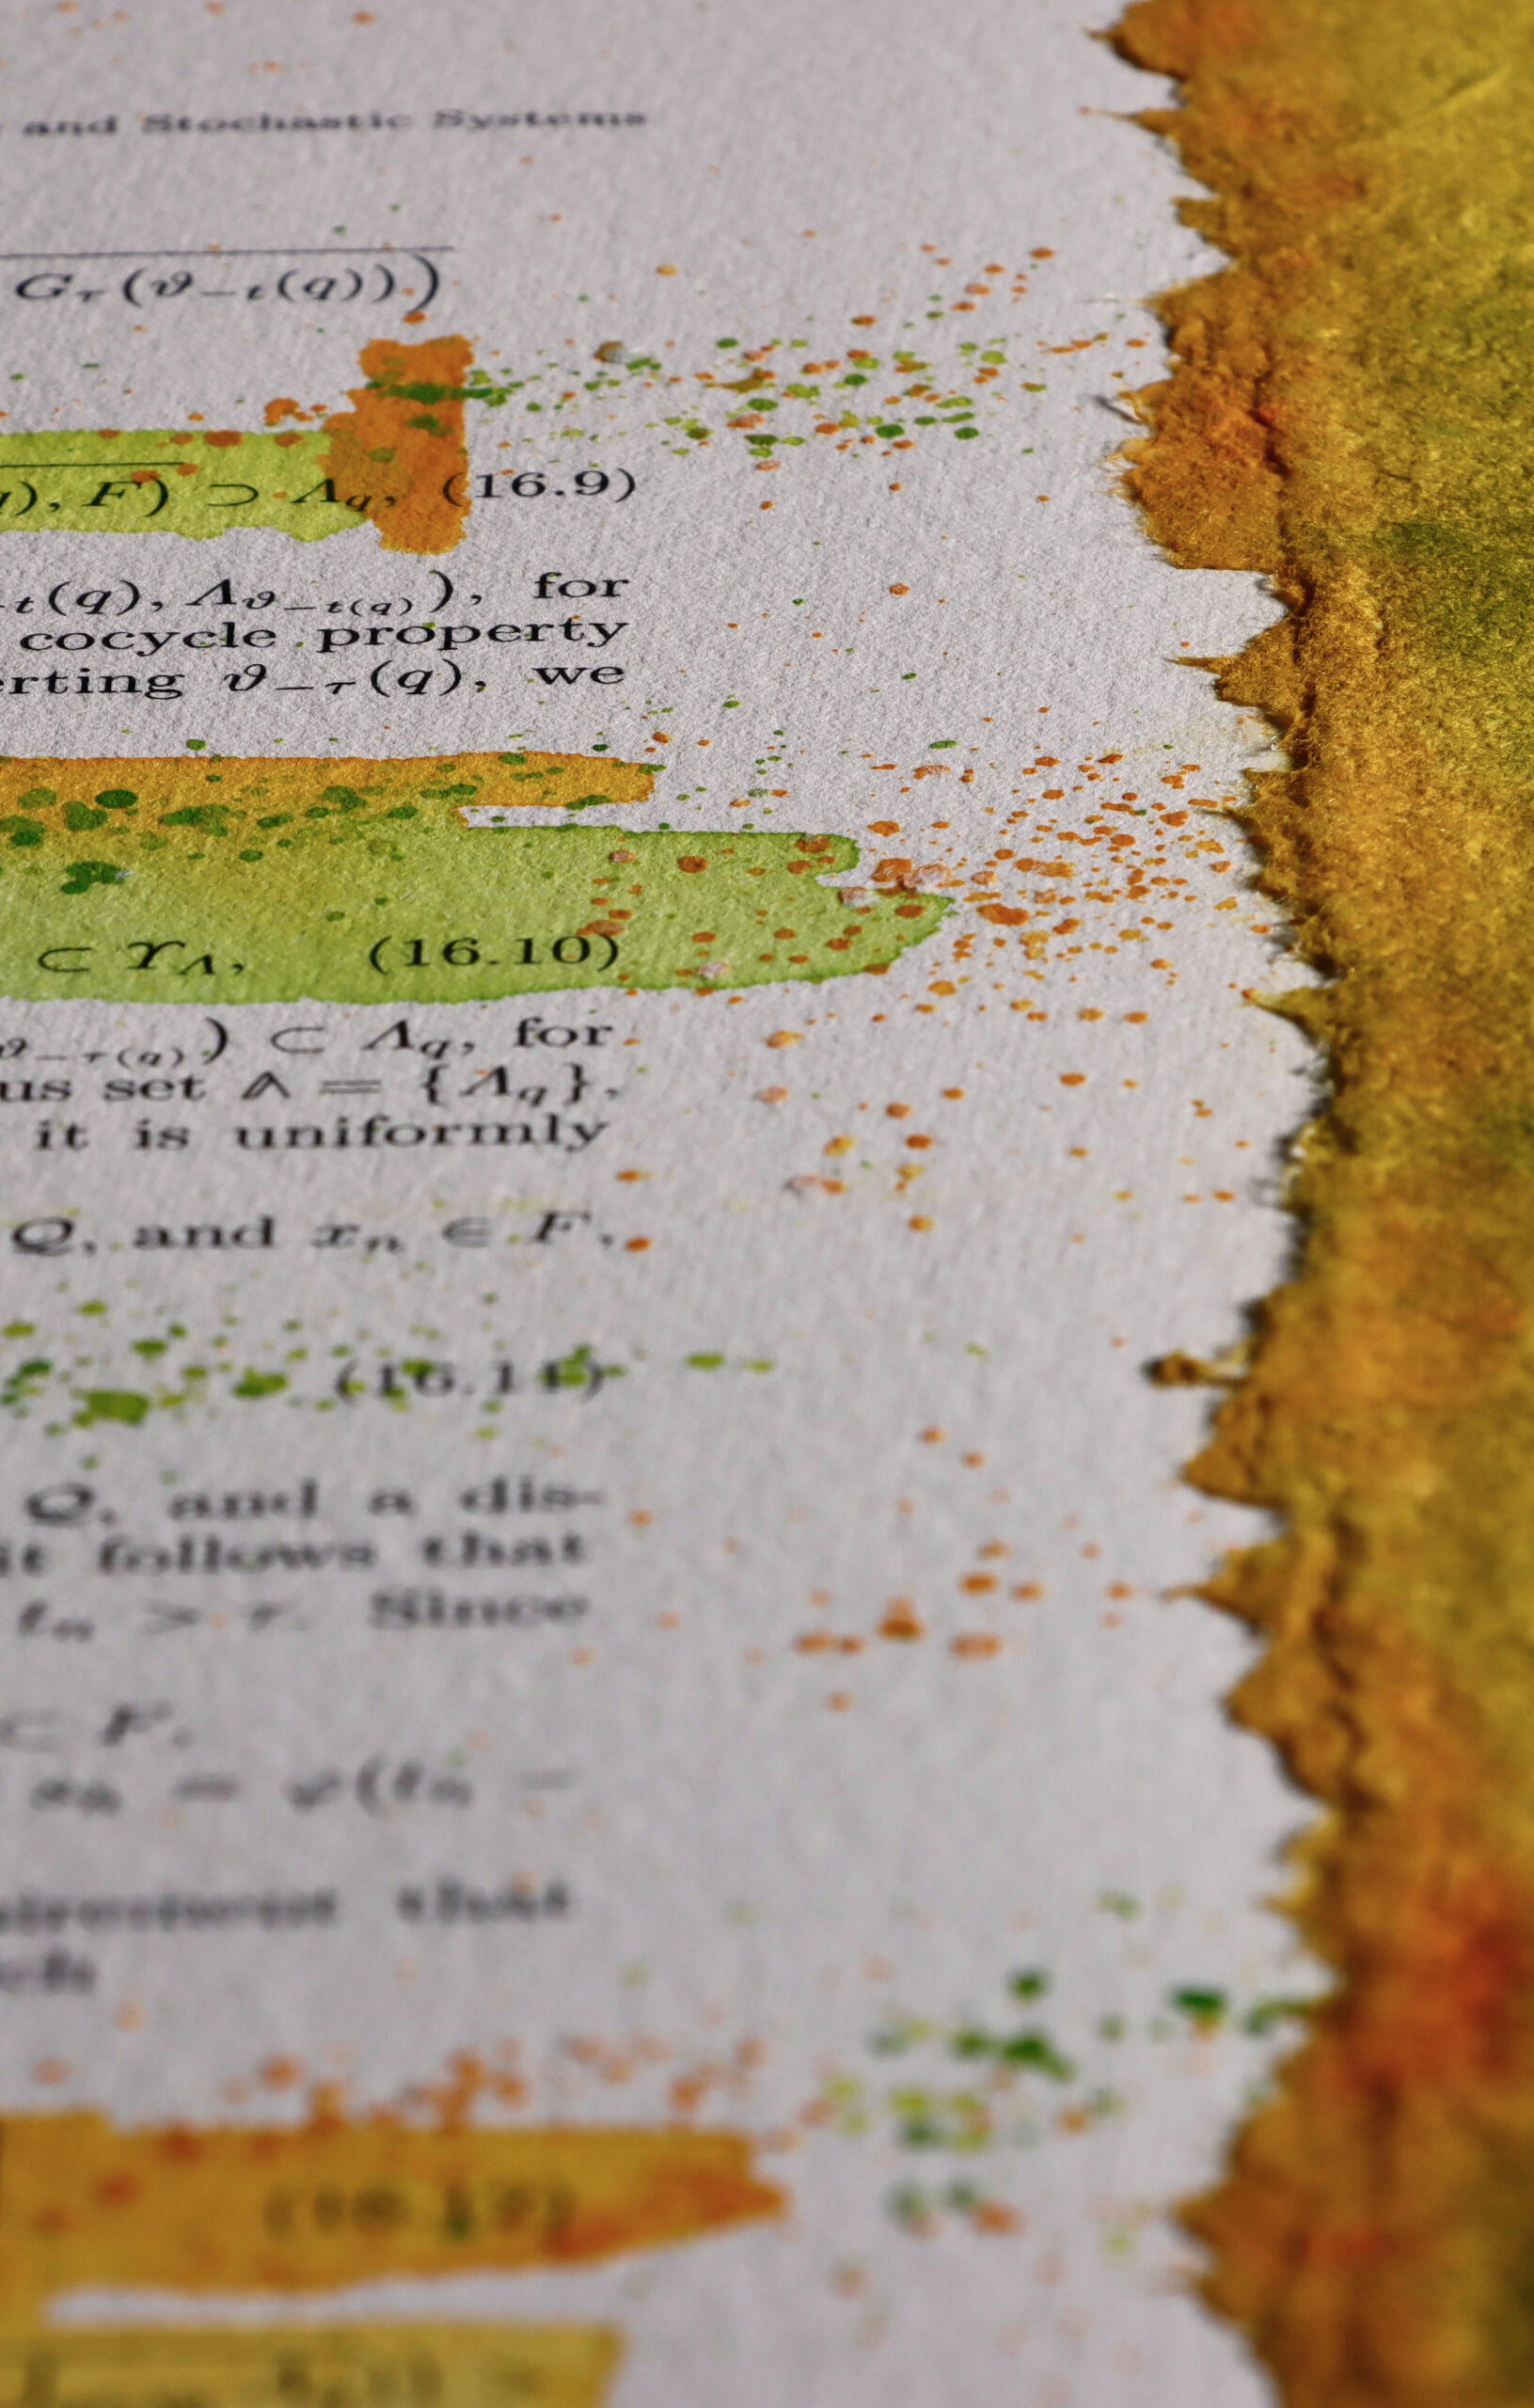 and Stochastic Systems
G_τ(ϑ_{−t}(q)))
q), F) ⊃ Λ_q, (16.9)
−t(q), Λ_{ϑ_{−t}(q)}), for
cocycle property
erting ϑ_{−τ}(q), we
⊂ ϒ_Λ, (16.10)
ϑ_{−τ}(q)) ⊂ Λ_q, for
us set 𝔸 = {Λ_q},
it is uniformly
Q, and x_n ∈ F,
(16.11)
Q, and a dis-
it follows that
t_n > τ. Since
⊂ F.
= φ(t_n −
irement that
ch
(16.12)